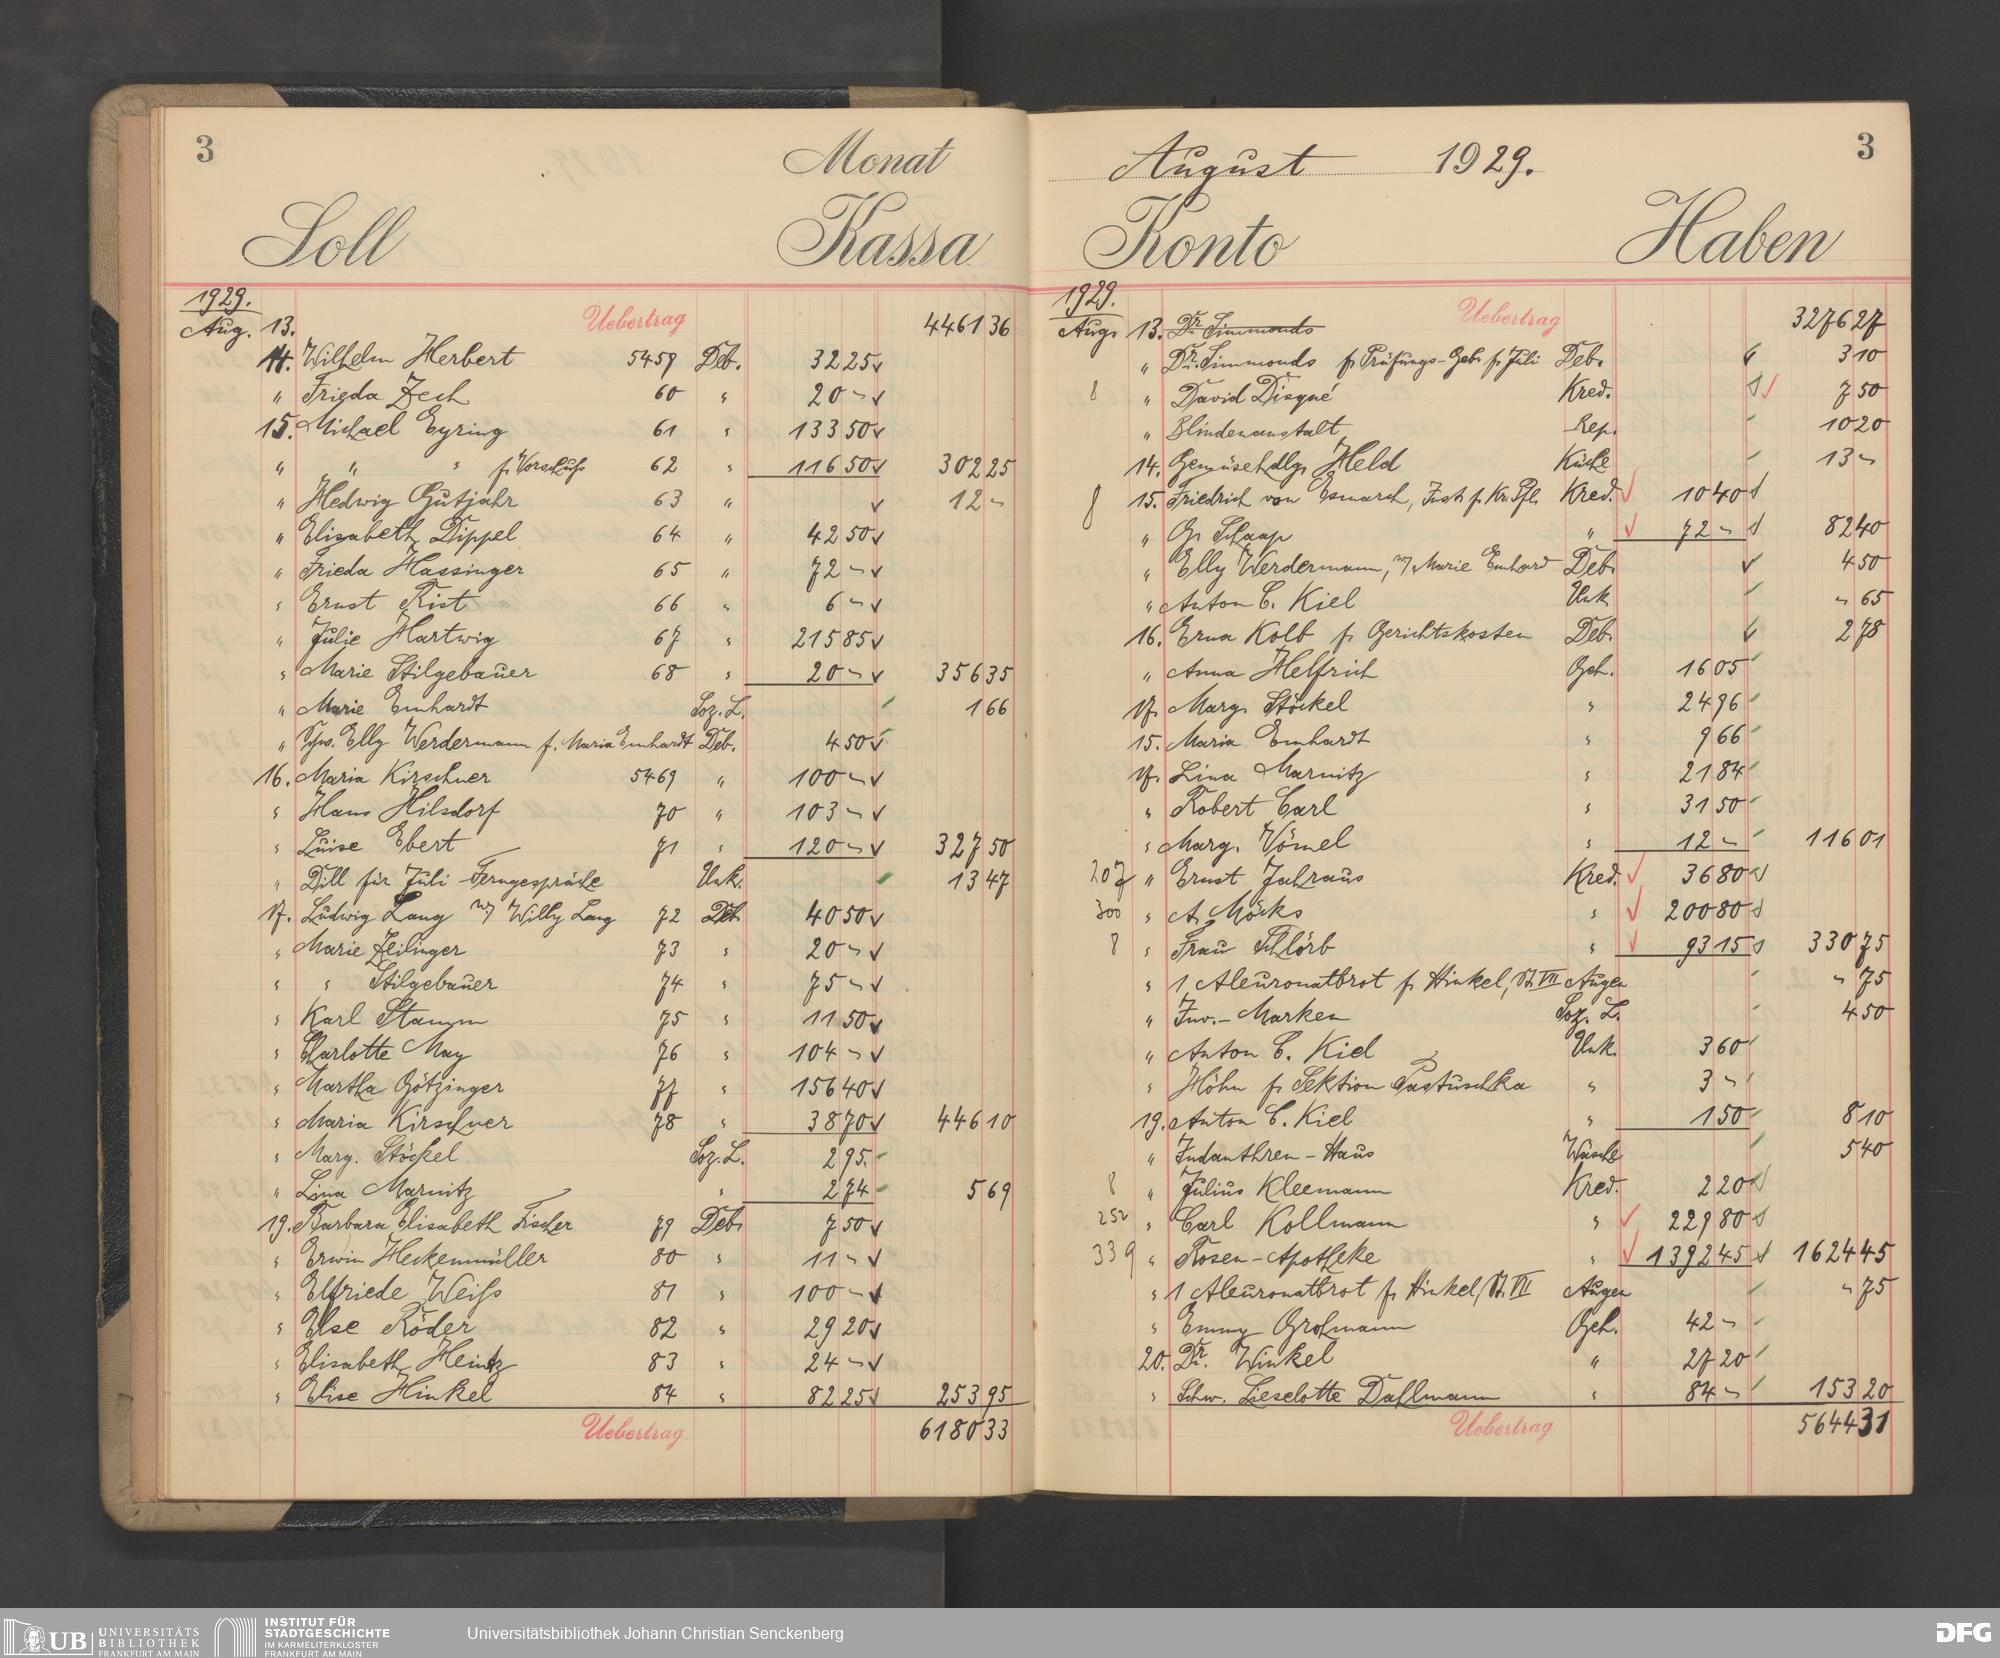 3 Monat
Soll Kassa
1929.
Aug. 13. Uebertrag 4461 36
14. Wilhelm Herbert 5459 Deb. 32 25
" Frieda Zech 60 " 20 –
15. Michael Eyring 61 " 133 50
" " " f. Vorschuß 62 " 116 50 302 25
" Hedwig Gutjahr 63 " 12 –
" Elisabeth Dippel 64 " 42 50
" Frieda Hassinger 65 " 72 –
" Ernst Rist 66 " 6 –
" Julie Hartwig 67 " 215 85
" Marie Stilgebauer 68 " 20 – 356 35
" Marie Emhardt Soz. L. 1 66
" Schw. Elly Werdermann f. Maria Emhardt Deb. 4 50
16. Maria Kirschner 5469 " 100 –
" Hans Hilsdorf 70 " 103 –
" Luise Ebert 71 " 120 – 327 50
" Dill für Juli-Ferngespräche Unk. 13 47
17. Ludwig Lang w/ Willy Lang 72 Deb. 40 50
" Marie Zeilinger 73 " 20 –
" " Stilgebauer 74 " 75 –
" Karl Stamm 75 " 11 50
" Charlotte May 76 " 104 –
" Martha Götzinger 77 " 156 40
" Maria Kirschner 78 " 38 70 446 10
" Marg. Stöckel Soz. L. 2 95
" Lina Marnitz " 2 74 5 69
19. Barbara Elisabeth Fischer 79 Deb. 7 50
" Erwin Heckenmüller 80 " 11 –
" Elfriede Weiß 81 " 100 –
" Else Röder 82 " 29 20
" Elisabeth Heintz 83 " 24 –
" Elise Hinkel 84 " 82 25 253 95
Uebertrag 6180 33
August 1929. 3
Konto Haben
1929.
Aug. 13. Dr. Simmonds Uebertrag 3276 27
" Dr. Simmonds f. Prüfungs-Geb. f. Juli Deb. 3 10
8 " David Disqué Kred. 7 50
" Blindenanstalt Rep. 10 20
14. Gemüsehdlg. Held Küche 13 –
8 15. Friedrich von Esmarch, Inst. f. Kr. Pfl. Kred. 10 40
" Gg. Schaap " 72 – 82 40
" Elly Werdermann, w/ Marie Emhard Deb. 4 50
" Anton C. Kiel Unk. – 65
16. Erna Kolb f. Gerichtskosten Deb. 2 78
" Anna Helfrich Geh. 16 05
17. Marg. Stöckel " 24 96
15. Maria Emhardt " 9 66
17. Lina Marnitz " 21 84
" Robert Carl " 31 50
" Marg. Vömel " 12 – 116 01
207 " Ernst Jahraus Kred. 36 80
300 " A. Möcks " 200 80
8 " Frau Schlörb " 93 15 330 75
" 1 Aleuronatbrot f. Hinkel, St. VII Augen – 75
" Inv.-Marken Soz. L. 4 50
" Anton C. Kiel Unk. 3 60
" Höhn f. Sektion Pastuschka " 3 –
19. Anton C. Kiel " 1 50 8 10
" Indanthren-Haus Wäsche 5 40
8 " Julius Kleemann Kred. 2 20
252 " Carl Kollmann " 229 80
339 " Rosen-Apotheke " 1392 45 1624 45
" 1 Aleuronatbrot f. Hinkel, St. VII Augen – 75
" Emmy Grohmann Geh. 42 –
20. Dr. Winkel " 27 20
" Schw. Lieselotte Dahlmann " 84 – 153 20
Uebertrag 5644 31
UB UNIVERSITÄTS BIBLIOTHEK FRANKFURT AM MAIN
INSTITUT FÜR STADTGESCHICHTE IM KARMELITERKLOSTER FRANKFURT AM MAIN
Universitätsbibliothek Johann Christian Senckenberg
DFG